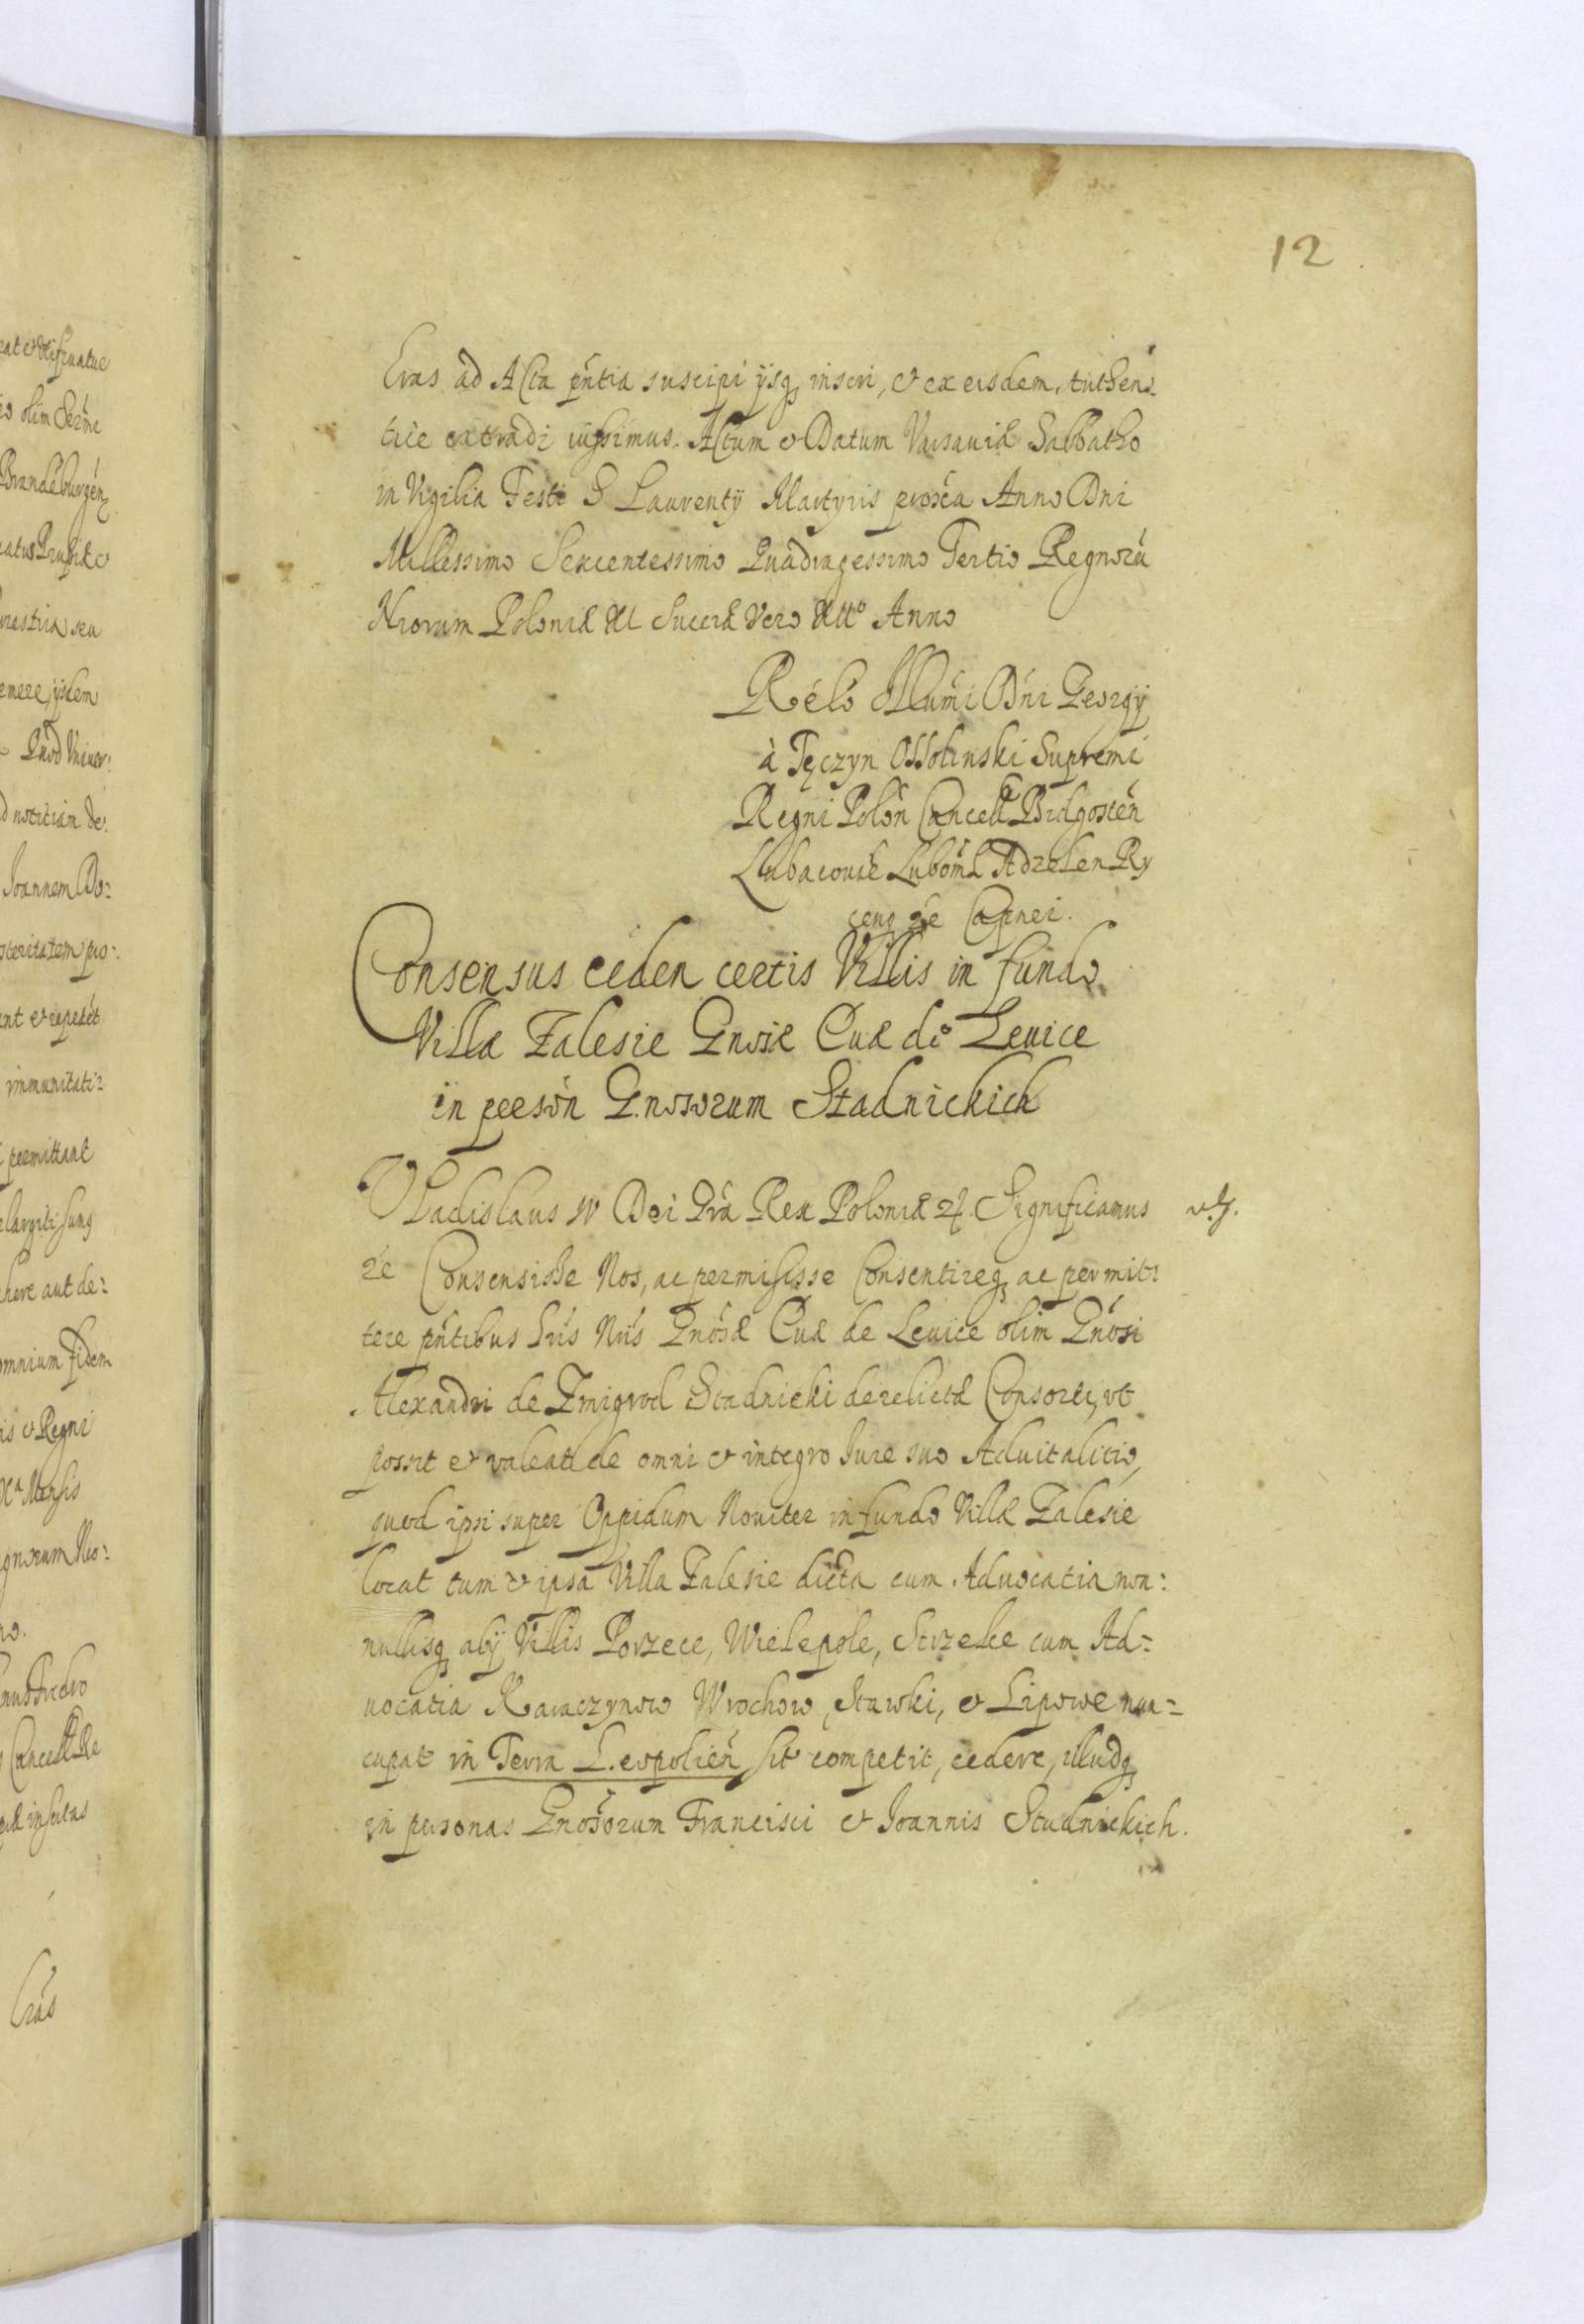 12
Lras ad Acta pñtia suscipi ijsq, inseri, et ex eisdem, Authen-
tice extradi iussimus. Actum et Datum Varsauiæ Sabbatho
in Vigilia Festi S Laurentij Martyris proxa Anno Dni
Millessimo Sexcentessimo Quadragessimo Tertio Regnorũ
Nrorum Poloniæ XI Sueciæ Vero XII° Anno
Rélò Illumi Dni Georgij
à Tęczyn Ossolinski Supremi
Regni Polon Cancell Bidgostén
Lubacouiē Lubomł Adzelen Ry
cenq ze Capnei.
Consensus ceden certis Villis in fundo
Villæ Zalesie Gnosæ Euæ de Leuice
in persón Gnosorum Stadnickich
Vladislaus IV Dei Grã Rex Poloniæ etc. Significamus
ze Consensisse Nos, ac permisisse Consentireq, ac permit-
tere pñtibus Lris Nris Gnosæ Euæ de Leuice olim Gnosi
Alexandri de Zmigrod Stadnicki derelictæ Consorti, vt
possit et valeat de omni et integro Iure suo Aduitalitio,
quod ipsi super Oppidum Nouiter in fundo Villæ Zalesie
locat tum et ipsa Villa Zalesie dicta cum Aduocatia non:
nullisq, alij Villis Porzece, Wielepole, Strzelce cum Ad-
uocatia Karaczynow Wrochow, Stawki, et Lipowe nun-
cupat in Terra Leopolien sit competit, cedere, illudq,
in personas Gnosorum Francisci et Joannis Stadnickich.